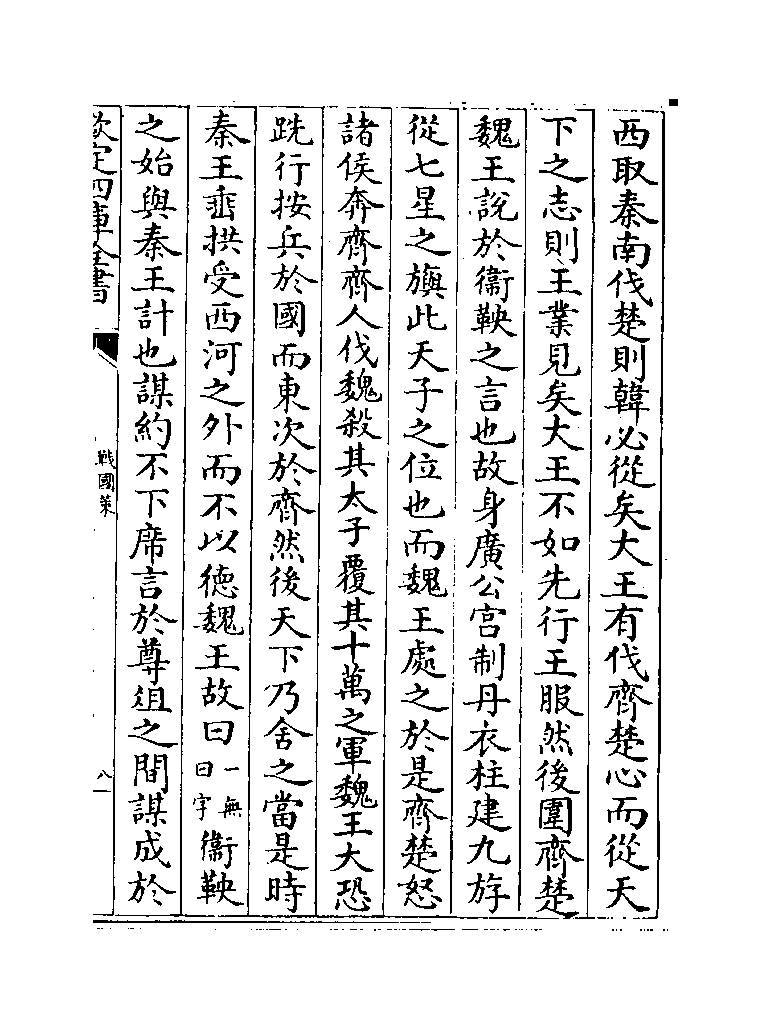 西取秦南伐楚則韓必從矣大王有伐齊楚心而從天
下之志則王業見矣大王不如先行王服然後圖齊楚
魏王說於衞鞅之言也故身廣公宫制丹衣柱建九斿
從七星之旟此天子之位也而魏王處之於是齊楚怒
諸侯奔齊齊人伐魏殺其太子覆其十萬之軍魏王大恐
跣行按兵於國而東次於齊然後天下乃舍之當是時
秦王垂拱受西河之外而不以德魏王故曰一無曰字衞鞅
之始與秦王計也謀約不下席言於尊俎之間謀成於
欽定四庫全書
戰國策
八